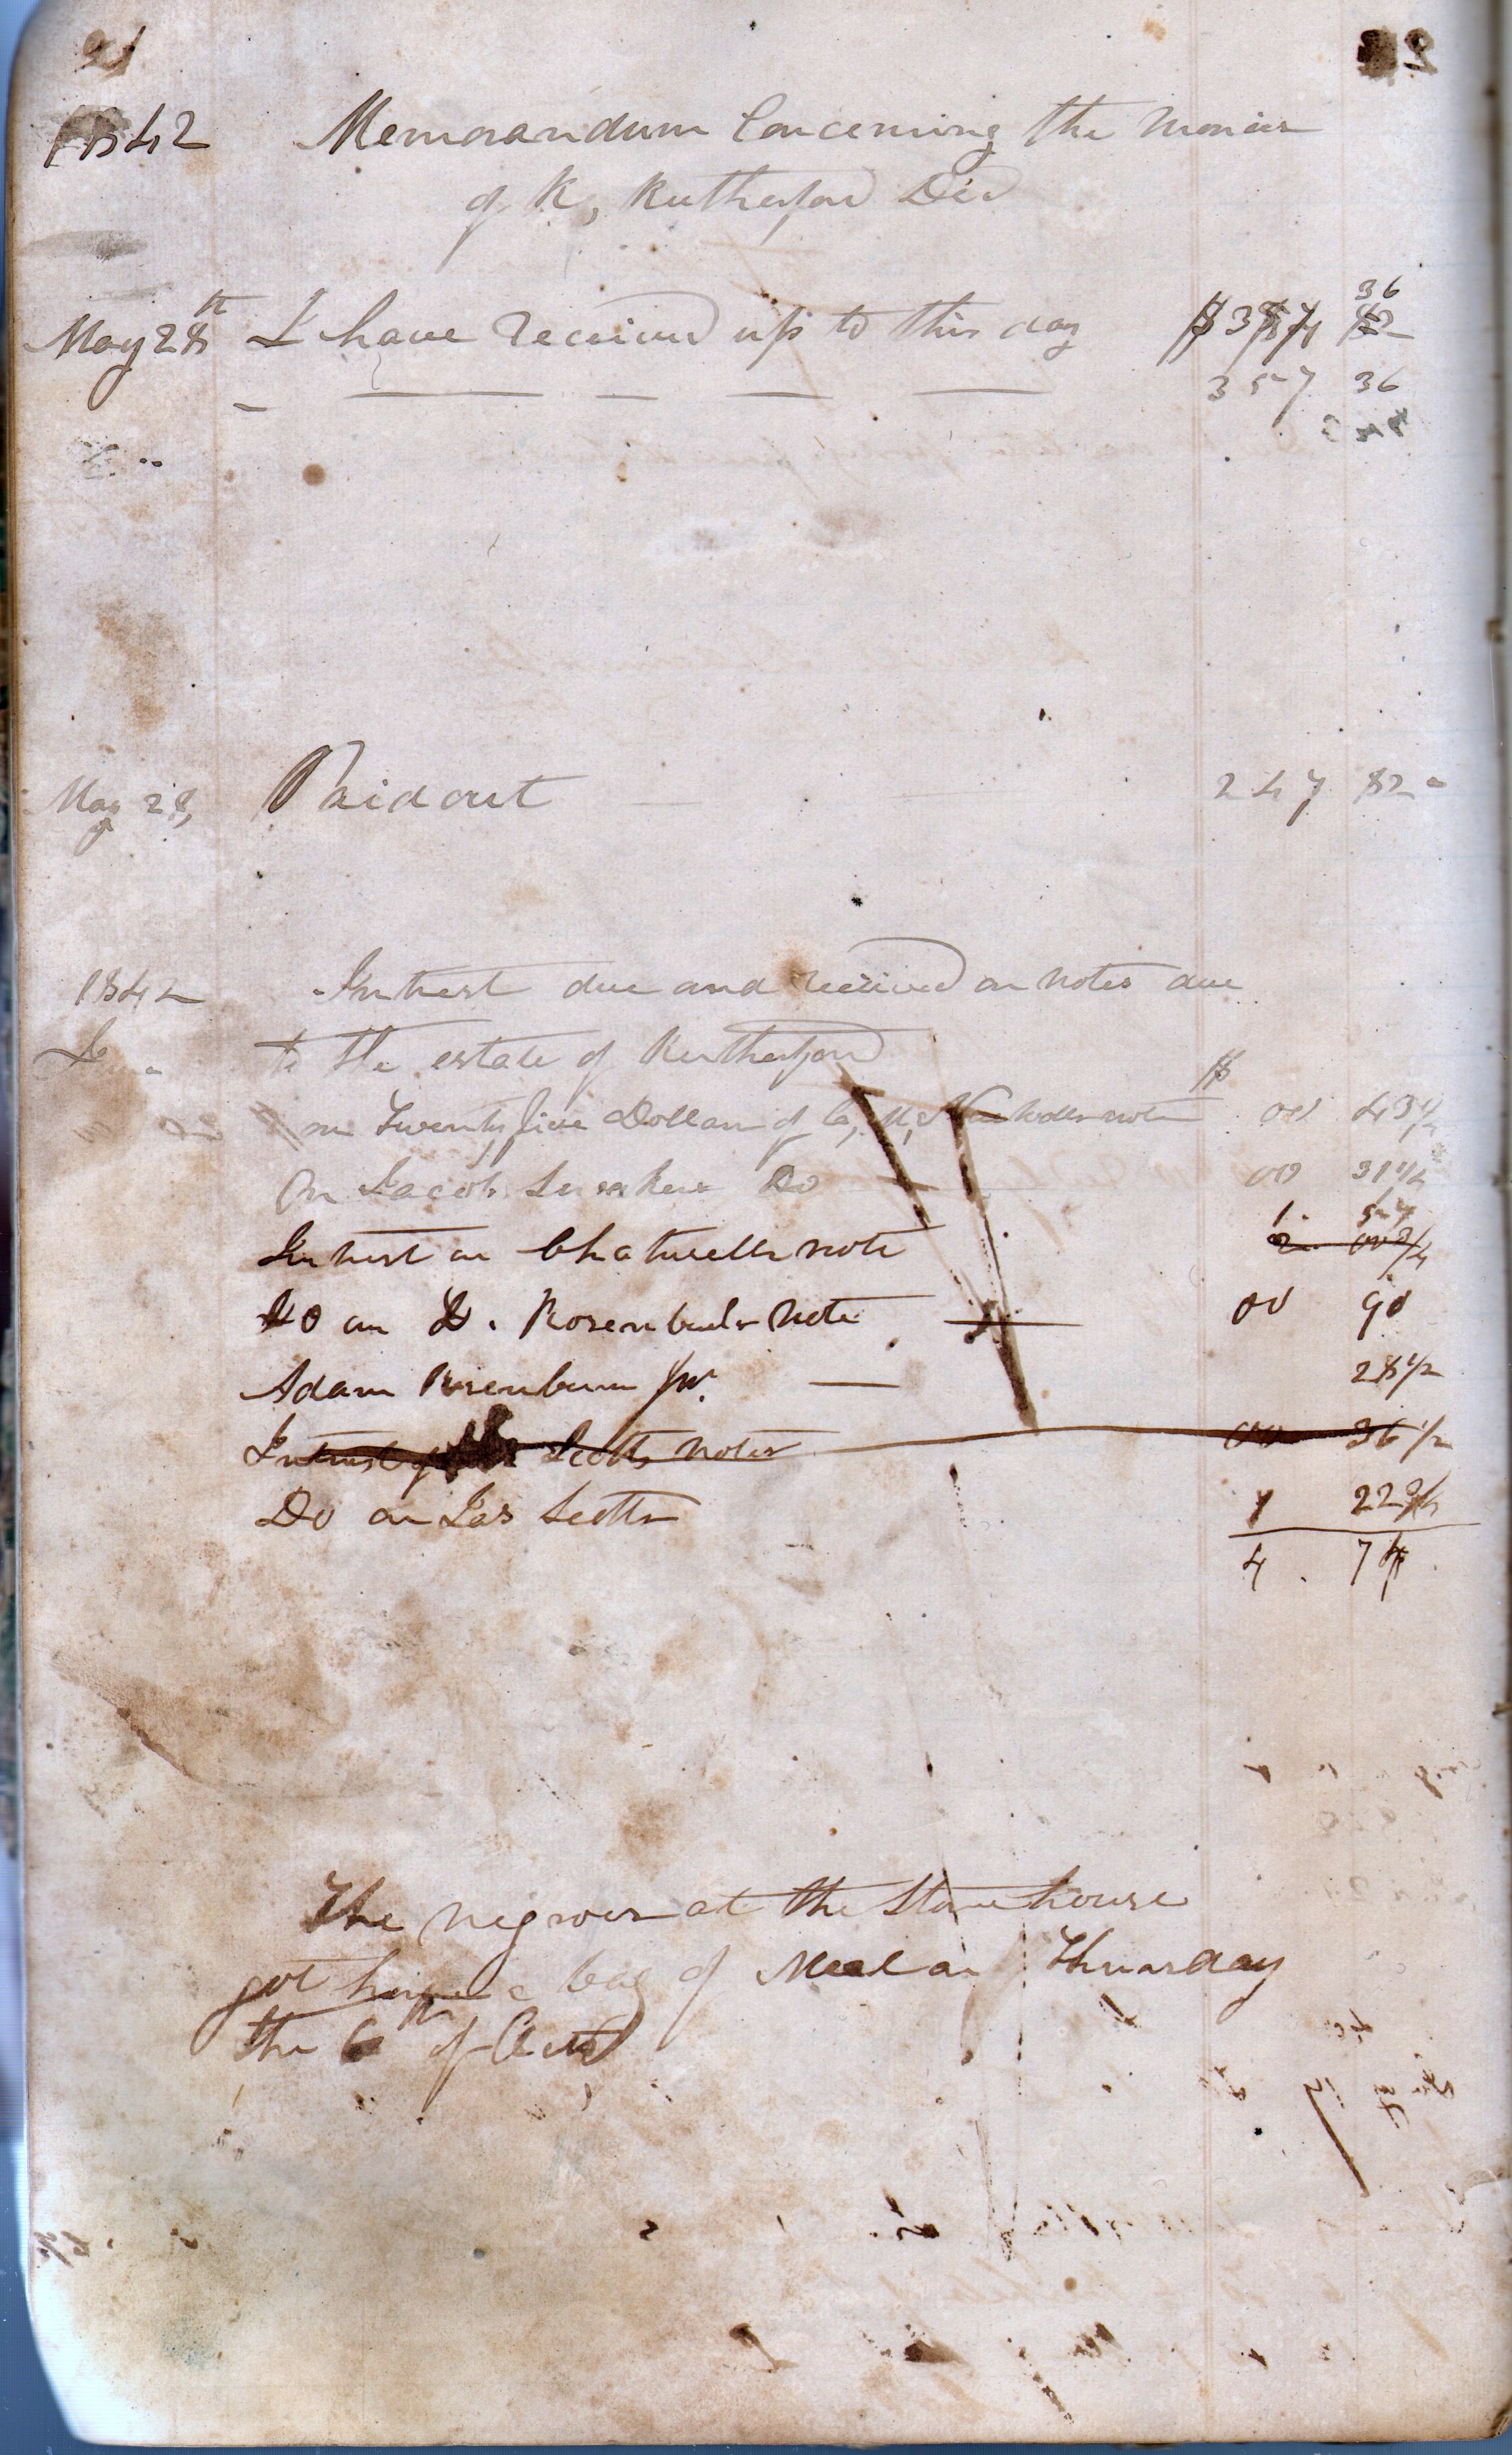 21
1842 Memorandum Concerning the monies
of K, Rutherford Decd
May 28th I have received up to this day
36
357 36
May 28, Paid out 247 82
1842 Interest due and received on notes due
to the estate of Rutherford
$
on Twenty five Dollars of note 00 43
On Jacob Do 00 31 1/2
1. 57
Interest on Chatwells note 2. 00 3/4
Do on note 00 90
Adam Rosenbum Jr. 28 1/2
Interest of Scotts notes 00 36 1/2
Do on Jas Scotts 1 22 3/4
4. 74
The negroes at the Stone house
got a bag of Meal on Thursday
the 6th of